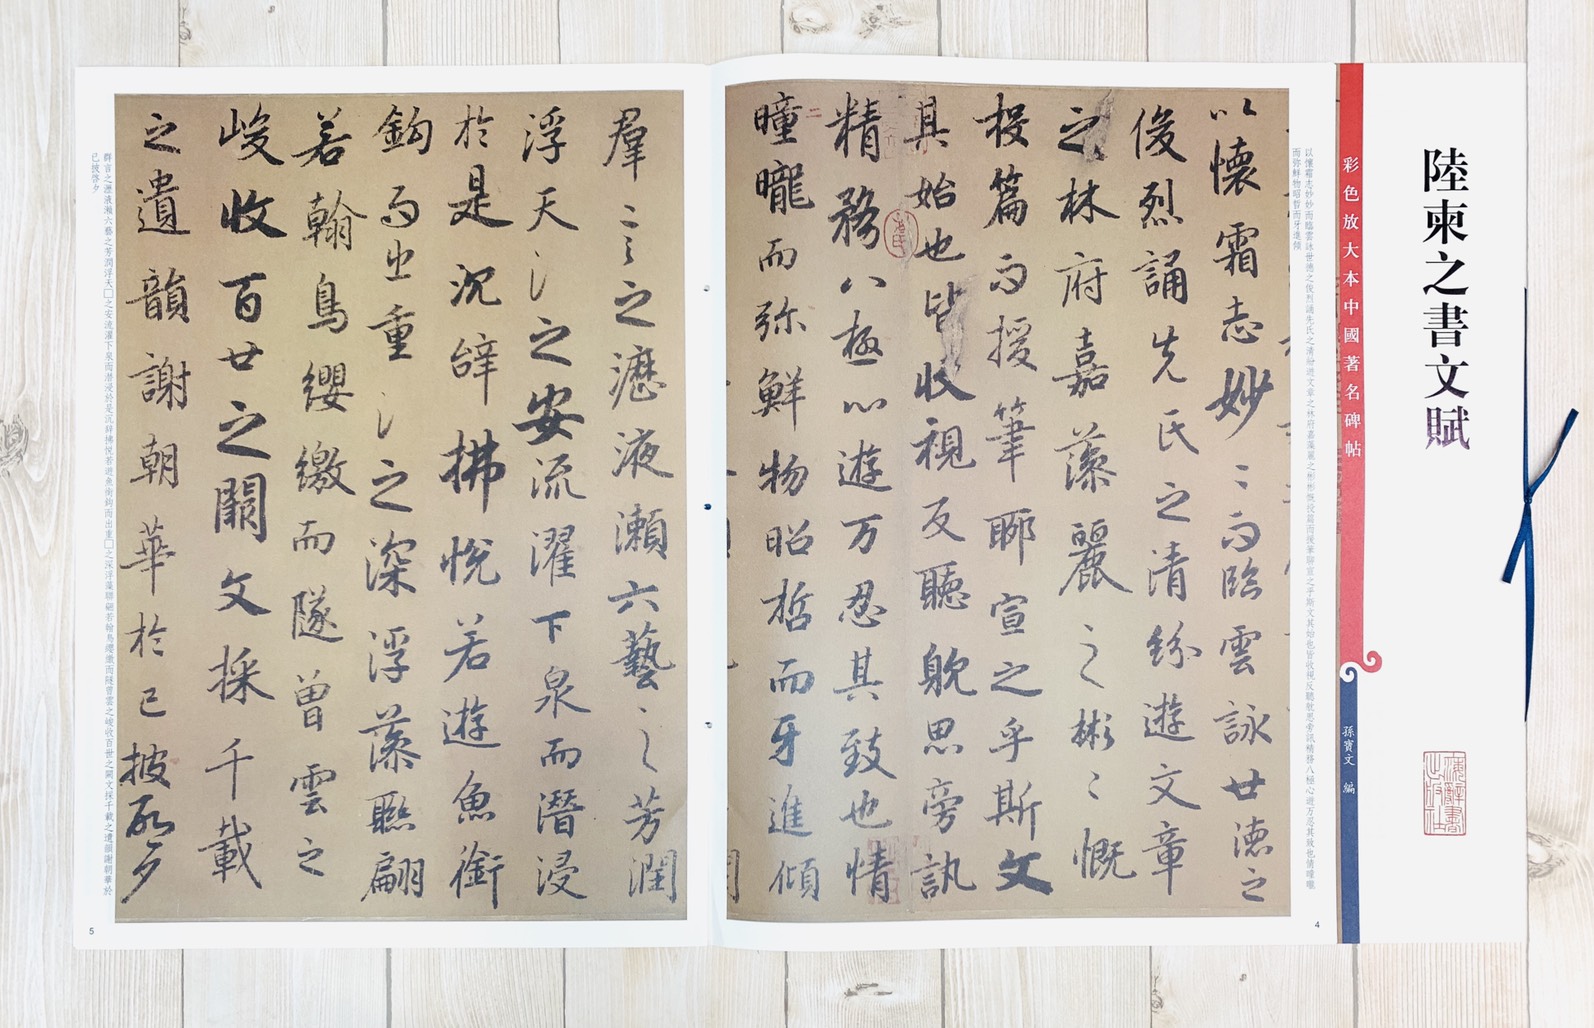 陸柬之書文賦
彩色放大本中國著名碑帖
孫寶文 編
以懷霜志妙妙而臨雲詠世德之俊烈誦先氏之清紛遊文章之林府嘉藻麗之彬彬慨投篇而授筆聊宣之乎斯文其始也皆收視反聽耽思旁訊精務八極心遊万忍其致也情曈曨
而弥鮮物昭晢而牙進傾
以懷霜志妙〻而臨雲詠世德之
俊烈誦先氏之清紛遊文章
之林府嘉藻麗之彬〻慨
投篇而授筆聊宣之乎斯文
其始也皆收視反聽耽思旁訊
精務八極心遊万忍其致也情
曈曨而弥鮮物昭晢而牙進傾
4
羣言之瀝液瀨六藝之芳潤
浮天氵之安流濯下泉而潛浸
於是沉辝拂悅若遊魚銜
鈎而出重氵之深浮藻聯翩
若翰鳥纓繳而隧曾雲之
峻收百世之闕文採千載
之遺韻謝朝華於已披啓夕
群言之瀝液瀨六藝之芳潤浮天□之安流濯下泉而潛浸於是沉辭拂悅若遊魚銜鈎而出重□之深浮藻聯翩若翰鳥纓繳而隧曾雲之峻收百世之闕文採千載之遺韻謝朝華於
已披啓夕
5